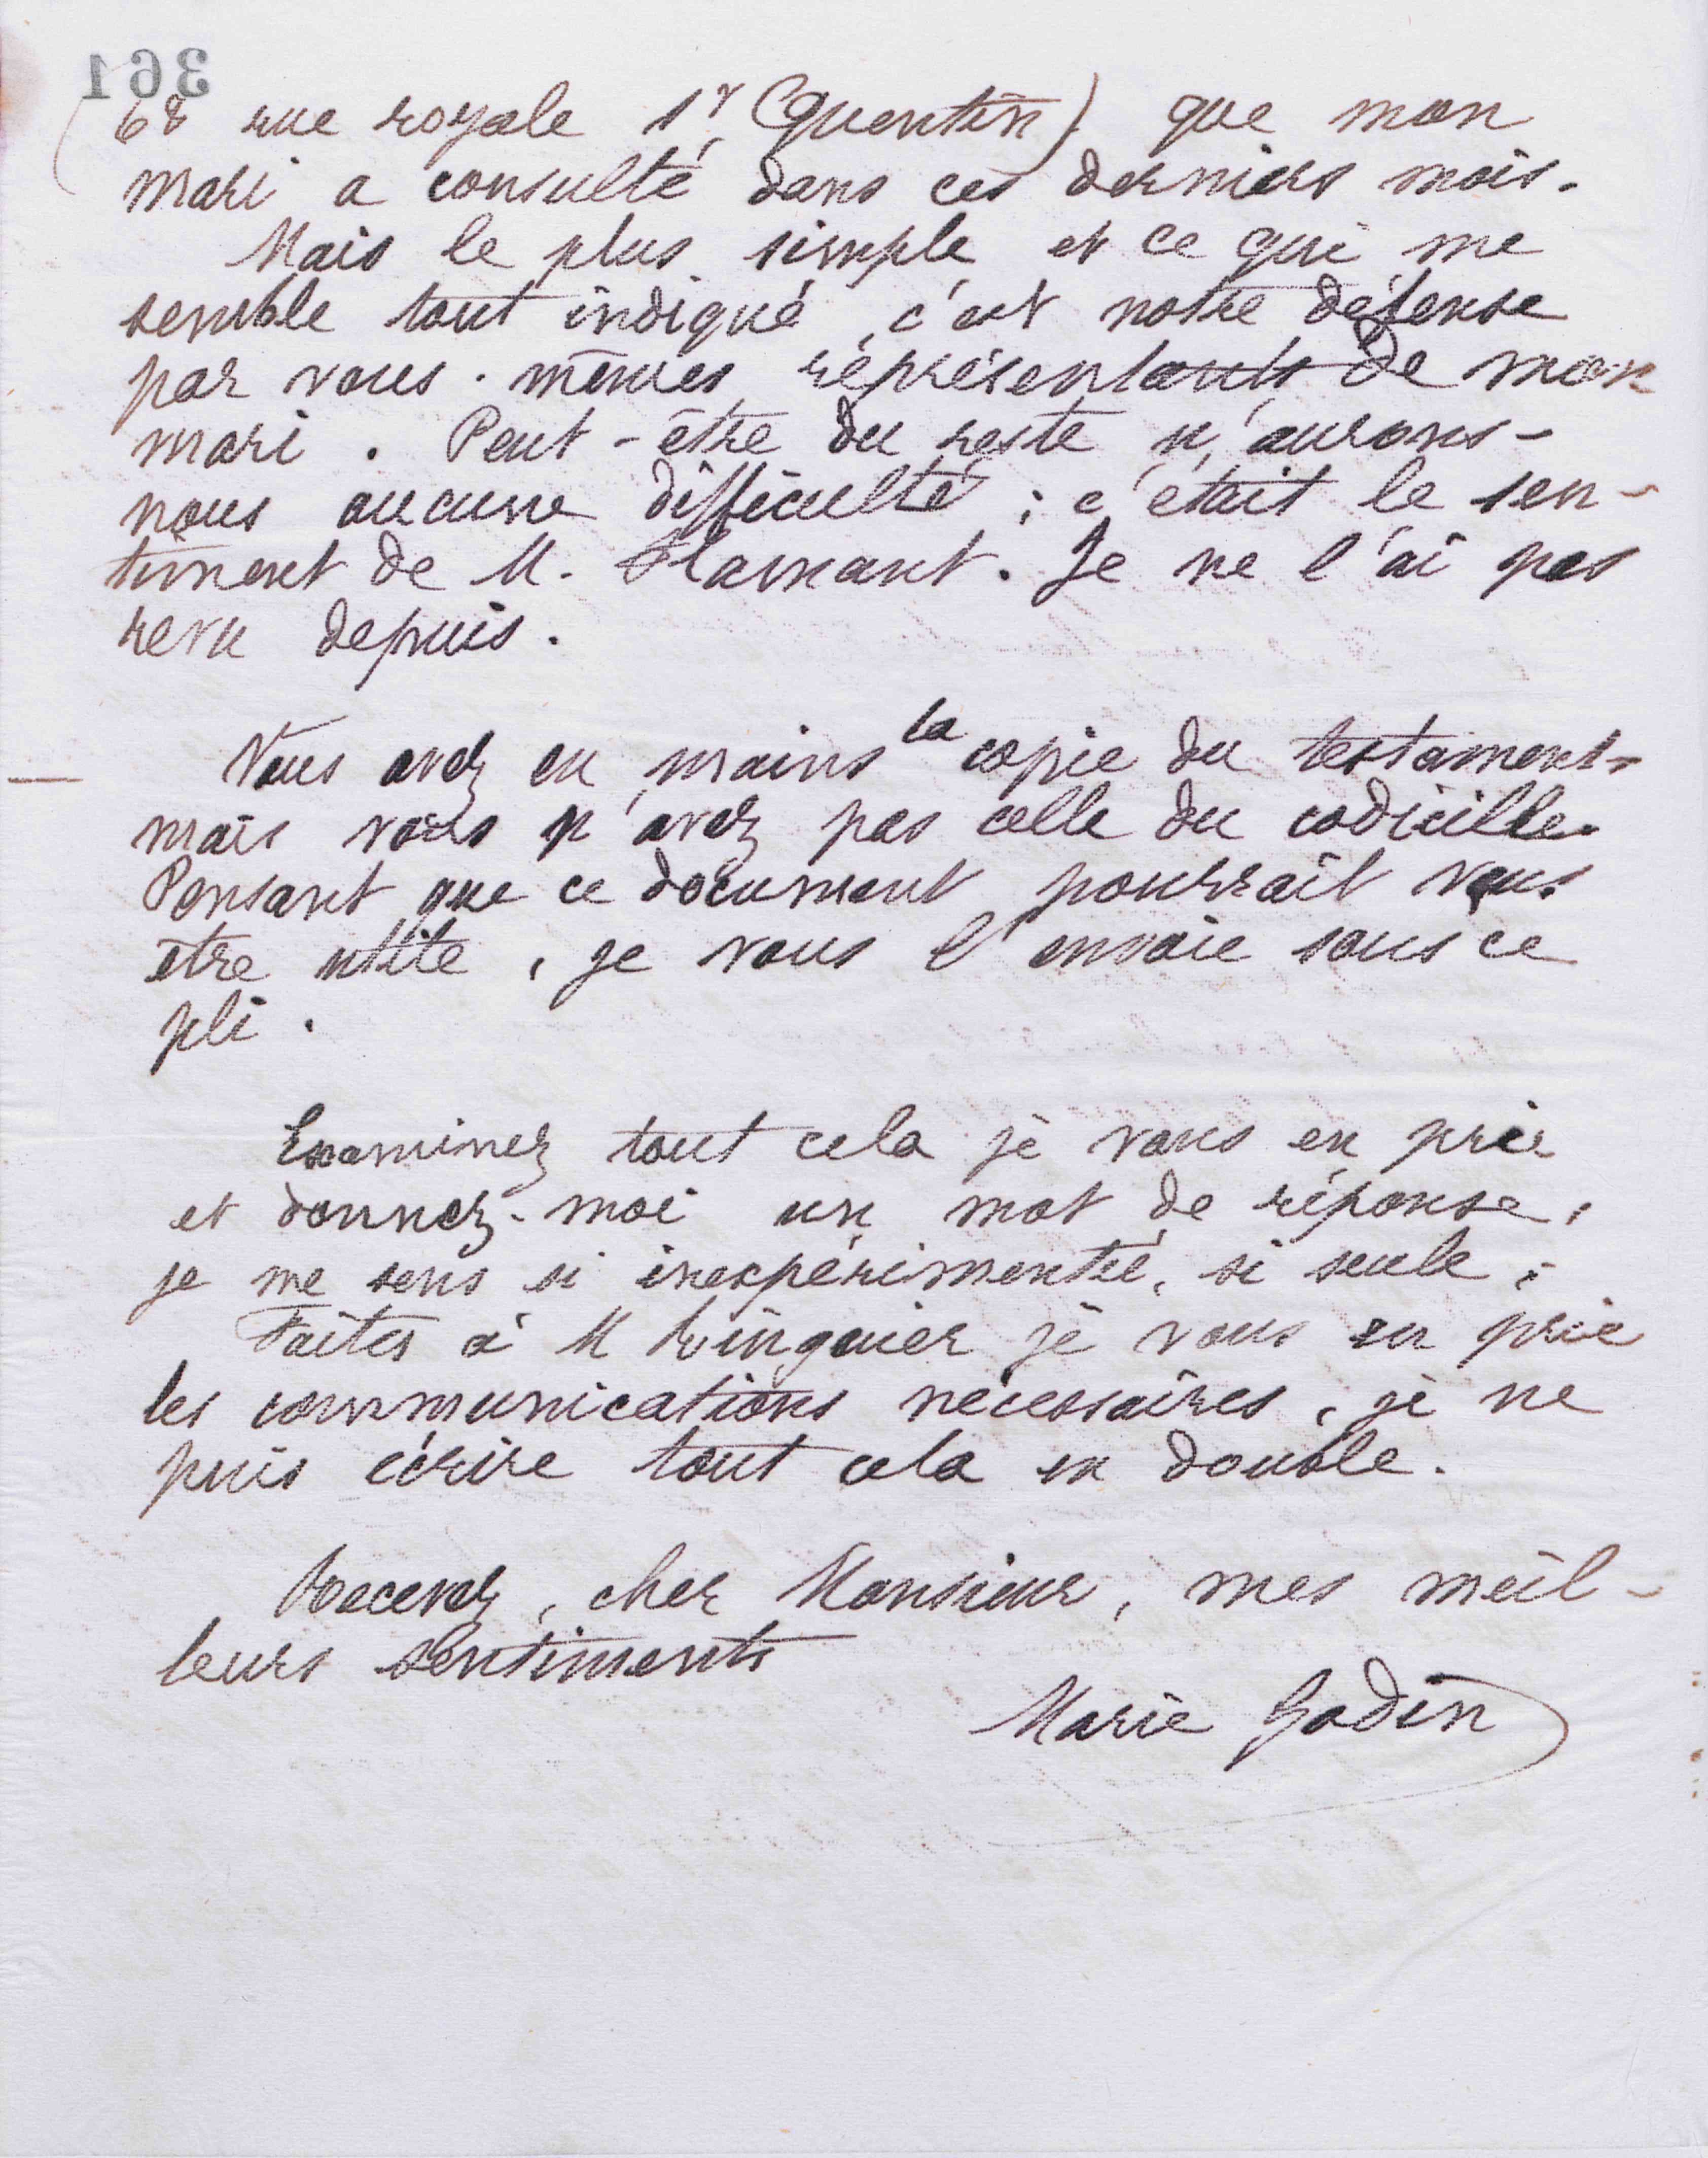 361
(68 rue royale St Quentin) que mon
mari a consulté dans ces derniers mois.
Mais le plus simple et ce qui me
semble tout indiqué, c'est notre défense
par vous-mêmes représentants de mon
mari. Peut-être du reste n'aurons-
nous aucune difficulté ; c'était le sen-
timent de M. Flamant. Je ne l'ai pas
revu depuis.
Vous avez en mains la copie du testament
mais vous n'avez pas celle du codicille.
Pensant que ce document pourrait vous
être utile, je vous l'envoie sous ce
pli.
Examinez tout cela je vous en prie
et donnez-moi un mot de réponse,
je me sens si inexpérimentée, si seule ;
Faites à M Ringuier je vous en prie
les communications nécessaires, je ne
puis écrire tout cela en double.
Recevez, cher Monsieur, mes meil-
leurs sentiments
Marie Godin